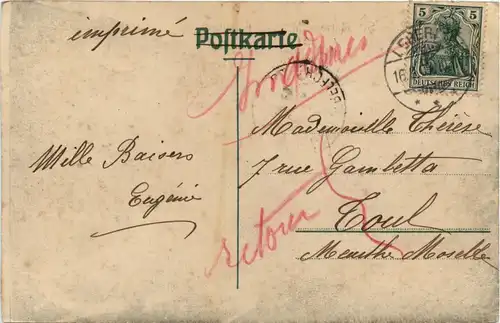 imprimé
Postkarte
5 5
DEUTSCHES REICH
16
retour
Mademoiselle Thérèse
7 rue Gambetta
Toul
Meurthe Moselle
Mille Baisers
Eugénie